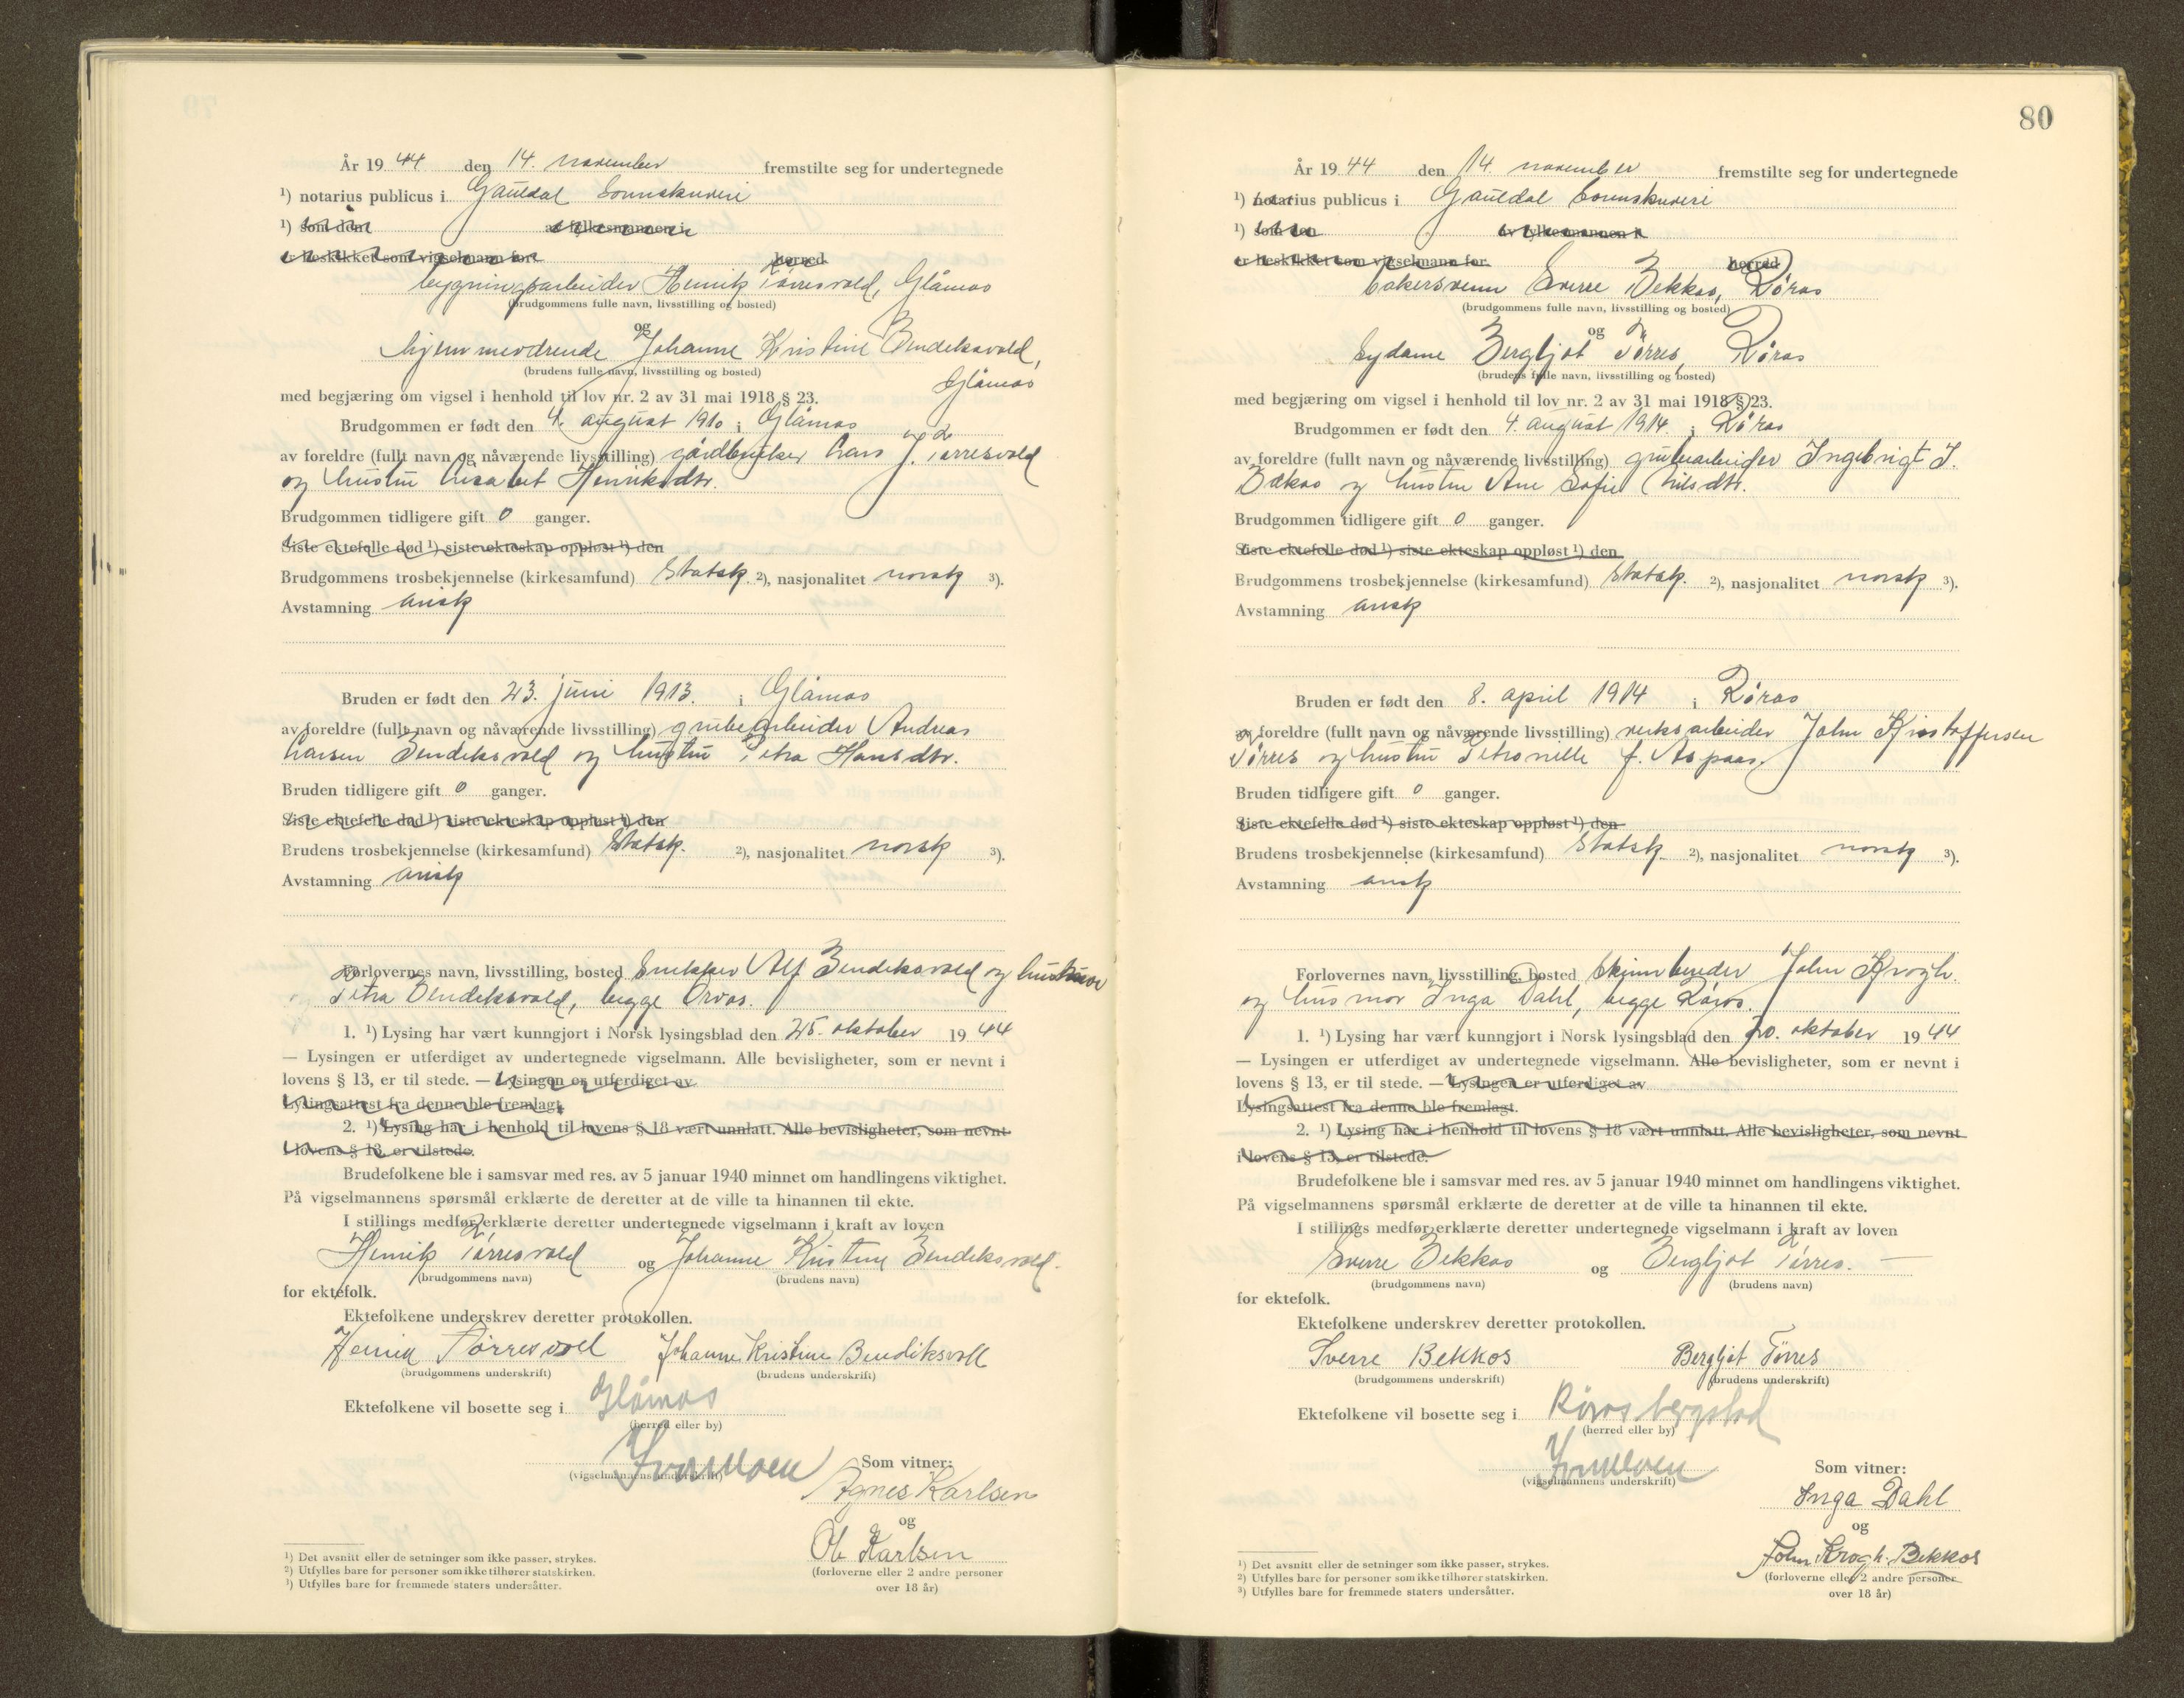 År 19 44 den 14. november fremstilte seg for undertegnede
¹) notarius publicus i Gauldal Sorenskriveri
¹) som den av fylkesmannen i
er beskikket som vigselmann for herred
bygningsarbeider Henrik Tørresvold, Glåmos
(brudgommens fulle navn, livsstilling og bosted)
og
hjemmeværende Johanne Kristine Bendiksvold,
(brudens fulle navn, livsstilling og bosted)
Glåmos
med begjæring om vigsel i henhold til lov nr. 2 av 31 mai 1918 § 23.
Brudgommen er født den 4. august 1910 i Glåmos
av foreldre (fullt navn og nåværende livsstilling) gårdbruker Lars J. Tørresvold
og hustru Lisabet Henriksdtr.
Brudgommen tidligere gift 0 ganger.
Siste ektefelle død ¹) siste ekteskap oppløst ¹) den
Brudgommens trosbekjennelse (kirkesamfund) Statsk. ²), nasjonalitet norsk ³).
Avstamning arisk
Bruden er født den 23. juni 1913. i Glåmos
av foreldre (fullt navn og nåværende livsstilling) grubearbeider Andreas
Larsen Bendiksvold og hustru Petra Hansdtr.
Bruden tidligere gift 0 ganger.
Siste ektefelle død ¹) siste ekteskap oppløst ¹) den
Brudens trosbekjennelse (kirkesamfund) Statsk. ²), nasjonalitet norsk ³).
Avstamning arisk
Forlovernes navn, livsstilling, bosted Snekker Alf Bendiksvold og husmor
Petra Bendiksvold, begge Orvos.
1. ¹) Lysing har vært kunngjort i Norsk lysingsblad den 25. oktober 19 44
— Lysingen er utferdiget av undertegnede vigselmann. Alle bevisligheter, som er nevnt i
lovens § 13, er til stede. — Lysingen er utferdiget av
Lysingsattest fra denne ble fremlagt.
2. ¹) Lysing har i henhold til lovens § 18 vært unnlatt. Alle bevisligheter, som nevnt
i lovens § 13, er tilstede.
Brudefolkene ble i samsvar med res. av 5 januar 1940 minnet om handlingens viktighet.
På vigselmannens spørsmål erklærte de deretter at de ville ta hinannen til ekte.
I stillings medfør erklærte deretter undertegnede vigselmann i kraft av loven
Henrik Tørresvold og Johanne Kristine Bendiksvold.
(brudgommens navn) (brudens navn)
for ektefolk.
Ektefolkene underskrev deretter protokollen.
Henrik Tørresvoll Johanne Kristine Bendiksvoll
(brudgommens underskrift) (brudens underskrift)
Ektefolkene vil bosette seg i Glåmos
(herred eller by)
(vigselmannens underskrift) Som vitner:
Agnes Karlsen
og
Ole Karlsen
(forloverne eller 2 andre personer
over 18 år)
¹) Det avsnitt eller de setninger som ikke passer, strykes.
²) Utfylles bare for personer som ikke tilhører statskirken.
³) Utfylles bare for fremmede staters undersåtter.
80
År 19 44 den 14. november fremstilte seg for undertegnede
¹) notarius publicus i Gauldal Sorenskriveri
¹) som den av fylkesmannen i
er beskikket som vigselmann for herred
bakersvenn Sverre Bekkos, Røros
(brudgommens fulle navn, livsstilling og bosted)
og
Sydame Bergljot Tørres, Røros
(brudens fulle navn, livsstilling og bosted)
med begjæring om vigsel i henhold til lov nr. 2 av 31 mai 1918 § 23.
Brudgommen er født den 4. august 1914. i Røros
av foreldre (fullt navn og nåværende livsstilling) grubearbeider Ingebrigt J.
Bekos og hustru Ane Sofie Nilsdtr.
Brudgommen tidligere gift 0 ganger.
Siste ektefelle død ¹) siste ekteskap oppløst ¹) den
Brudgommens trosbekjennelse (kirkesamfund) Statsk. ²), nasjonalitet norsk ³).
Avstamning arisk
Bruden er født den 8. april 1914 i Røros
av foreldre (fullt navn og nåværende livsstilling) verksarbeider John Kristoffersen
Tørres og hustru Petronille f. Aspaas.
Bruden tidligere gift 0 ganger.
Siste ektefelle død ¹) siste ekteskap oppløst ¹) den
Brudens trosbekjennelse (kirkesamfund) Statsk. ²), nasjonalitet norsk ³).
Avstamning arisk
Forlovernes navn, livsstilling, bosted Skinnbereder John Krogh.
og husmor Inga Dahl, begge Røros.
1. ¹) Lysing har vært kunngjort i Norsk lysingsblad den 20. oktober 19 44
— Lysingen er utferdiget av undertegnede vigselmann. Alle bevisligheter, som er nevnt i
lovens § 13, er til stede. — Lysingen er utferdiget av
Lysingsattest fra denne ble fremlagt.
2. ¹) Lysing har i henhold til lovens § 18 vært unnlatt. Alle bevisligheter, som nevnt
i lovens § 13, er tilstede.
Brudefolkene ble i samsvar med res. av 5 januar 1940 minnet om handlingens viktighet.
På vigselmannens spørsmål erklærte de deretter at de ville ta hinannen til ekte.
I stillings medfør erklærte deretter undertegnede vigselmann i kraft av loven
Sverre Bekkos og Bergljot Tørres. —
(brudgommens navn) (brudens navn)
for ektefolk.
Ektefolkene underskrev deretter protokollen.
Sverre Bekkos Bergljot Tørres
(brudgommens underskrift) (brudens underskrift)
Ektefolkene vil bosette seg i Røros bergstad
(herred eller by)
(vigselmannens underskrift) Som vitner:
Inga Dahl
og
John Krogh. Bekkos
(forloverne eller 2 andre personer
over 18 år)
¹) Det avsnitt eller de setninger som ikke passer, strykes.
²) Utfylles bare for personer som ikke tilhører statskirken.
³) Utfylles bare for fremmede staters undersåtter.